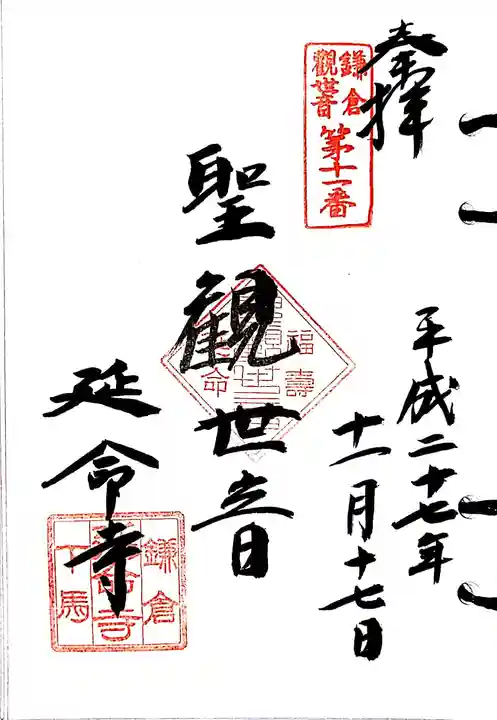 奉拝
鎌倉
觀音
第十一番
平成二十七年
十一月十七日
聖観世音
福壽
命
延命寺
鎌倉
下馬